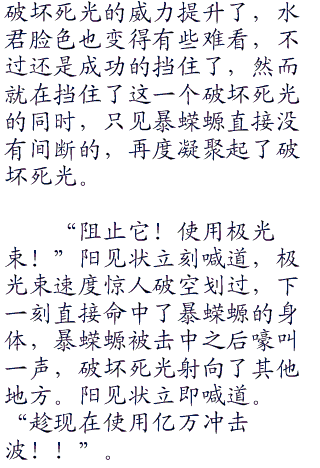 破坏死光的威力提升了，水
君脸色也变得有些难看，不
过还是成功的挡住了，然而
就在挡住了这一个破坏死光
的同时，只见暴蝾螈直接没
有间断的，再度凝聚起了破
坏死光。
“阻止它！使用极光
束！”阳见状立刻喊道，极
光束速度惊人破空划过，下
一刻直接命中了暴蝾螈的身
体，暴蝾螈被击中之后嚎叫
一声，破坏死光射向了其他
地方。阳见状立即喊道。
“趁现在使用亿万冲击
波！！”。